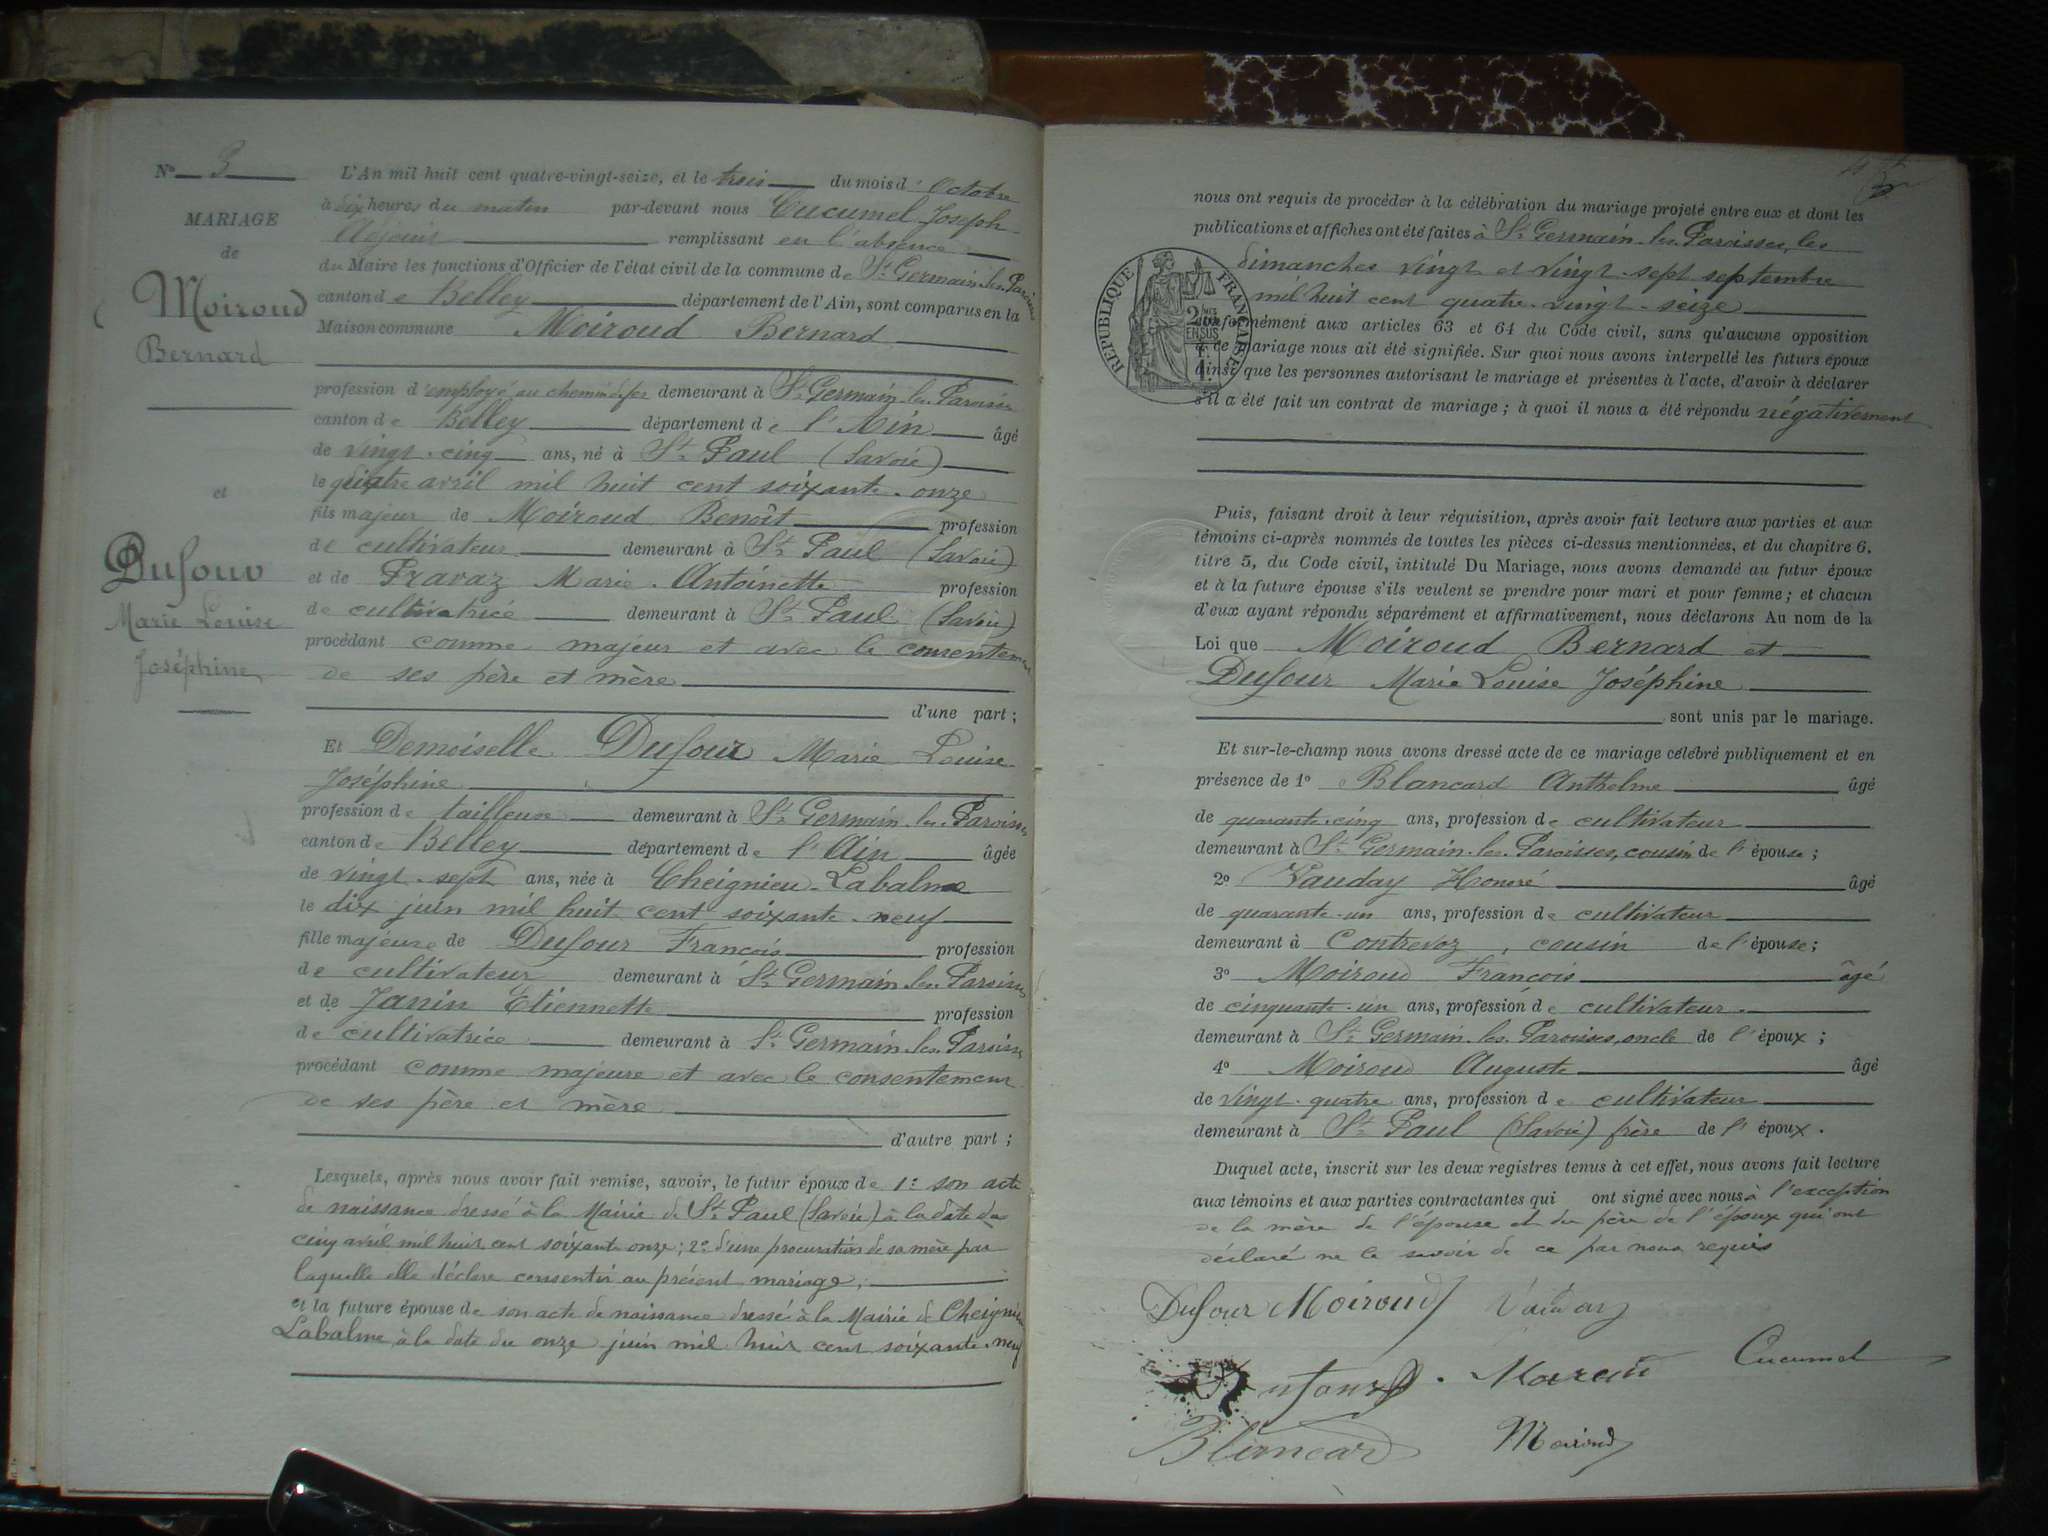 N° 3
MARIAGE
de
Moiroud
Bernard
et
Dufour
Marie Louise
Joséphine
L'An mil huit cent quatre-vingt-seize, et le trois du mois d'Octobre
à dix heures du matin par-devant nous Cucumel Joseph
Adjoint remplissant en l'absence
du Maire les fonctions d'Officier de l'état civil de la commune de St Germain-les-Paroisses
canton de Belley département de l'Ain, sont comparus en la
Maison commune Moiroud Bernard
profession d'employé au chemin de fer demeurant à St Germain-les-Paroisses
canton de Belley département de l'Ain âgé
de vingt-cinq ans, né à St Paul (Savoie)
le quatre avril mil huit cent soixante-onze
fils majeur de Moiroud Benoît profession
de cultivateur demeurant à St Paul (Savoie)
et de Pravaz Marie-Antoinette profession
de cultivatrice demeurant à St Paul (Savoie)
procédant comme majeur et avec le consentement
de ses père et mère
d'une part ;
Et Demoiselle Dufour Marie Louise
Joséphine
profession de tailleuse demeurant à St Germain-les-Paroisses
canton de Belley département de l'Ain âgée
de vingt-sept ans, née à Cheignieu-Labalme
le dix juin mil huit cent soixante-neuf
fille majeure de Dufour François profession
de cultivateur demeurant à St Germain-les-Paroisses
et de Janin Etiennette profession
de cultivatrice demeurant à St Germain-les-Paroisses
procédant comme majeure et avec le consentement
de ses père et mère
d'autre part ;
Lesquels, après nous avoir fait remise, savoir, le futur époux de 1° son acte
de naissance dressé à la Mairie de St Paul (Savoie) à la date du
cinq avril mil huit cent soixante onze ; 2° d'une procuration de sa mère par
laquelle elle déclare consentir au présent mariage ;
et la future épouse de son acte de naissance dressé à la Mairie de Cheignieu
Labalme à la date du onze juin mil huit cent soixante-neuf
nous ont requis de procéder à la célébration du mariage projeté entre eux et dont les
publications et affiches ont été faites à St Germain-les-Paroisses, les
dimanches vingt et vingt-sept septembre
mil huit cent quatre-vingt-seize
conformément aux articles 63 et 64 du Code civil, sans qu'aucune opposition
à ce mariage nous ait été signifiée. Sur quoi nous avons interpellé les futurs époux
ainsi que les personnes autorisant le mariage et présentes à l'acte, d'avoir à déclarer
s'il a été fait un contrat de mariage ; à quoi il nous a été répondu négativement
RÉPUBLIQUE FRANÇAISE
Puis, faisant droit à leur réquisition, après avoir fait lecture aux parties et aux
témoins ci-après nommés de toutes les pièces ci-dessus mentionnées, et du chapitre 6,
titre 5, du Code civil, intitulé Du Mariage, nous avons demandé au futur époux
et à la future épouse s'ils veulent se prendre pour mari et pour femme ; et chacun
d'eux ayant répondu séparément et affirmativement, nous déclarons Au nom de la
Loi que Moiroud Bernard et
Dufour Marie Louise Joséphine
sont unis par le mariage.
Et sur-le-champ nous avons dressé acte de ce mariage célébré publiquement et en
présence de 1° Blancard Anthelme âgé
de quarante-cinq ans, profession de cultivateur
demeurant à St Germain-les-Paroisses, cousin de l'épouse ;
2° Vauday Honoré âgé
de quarante-un ans, profession de cultivateur
demeurant à Contrevoz, cousin de l'épouse ;
3° Moiroud François âgé
de cinquante-un ans, profession de cultivateur
demeurant à St Germain-les-Paroisses, oncle de l'époux ;
4° Moiroud Auguste âgé
de vingt-quatre ans, profession de cultivateur
demeurant à St Paul (Savoie) frère de l'époux.
Duquel acte, inscrit sur les deux registres tenus à cet effet, nous avons fait lecture
aux témoins et aux parties contractantes qui ont signé avec nous à l'exception
de la mère de l'épouse et du père de l'époux qui ont
déclaré ne le savoir de ce par nous requis
Dufour Moiroud Vauday
Cucumel
Moiroud
Blancard Moiroud